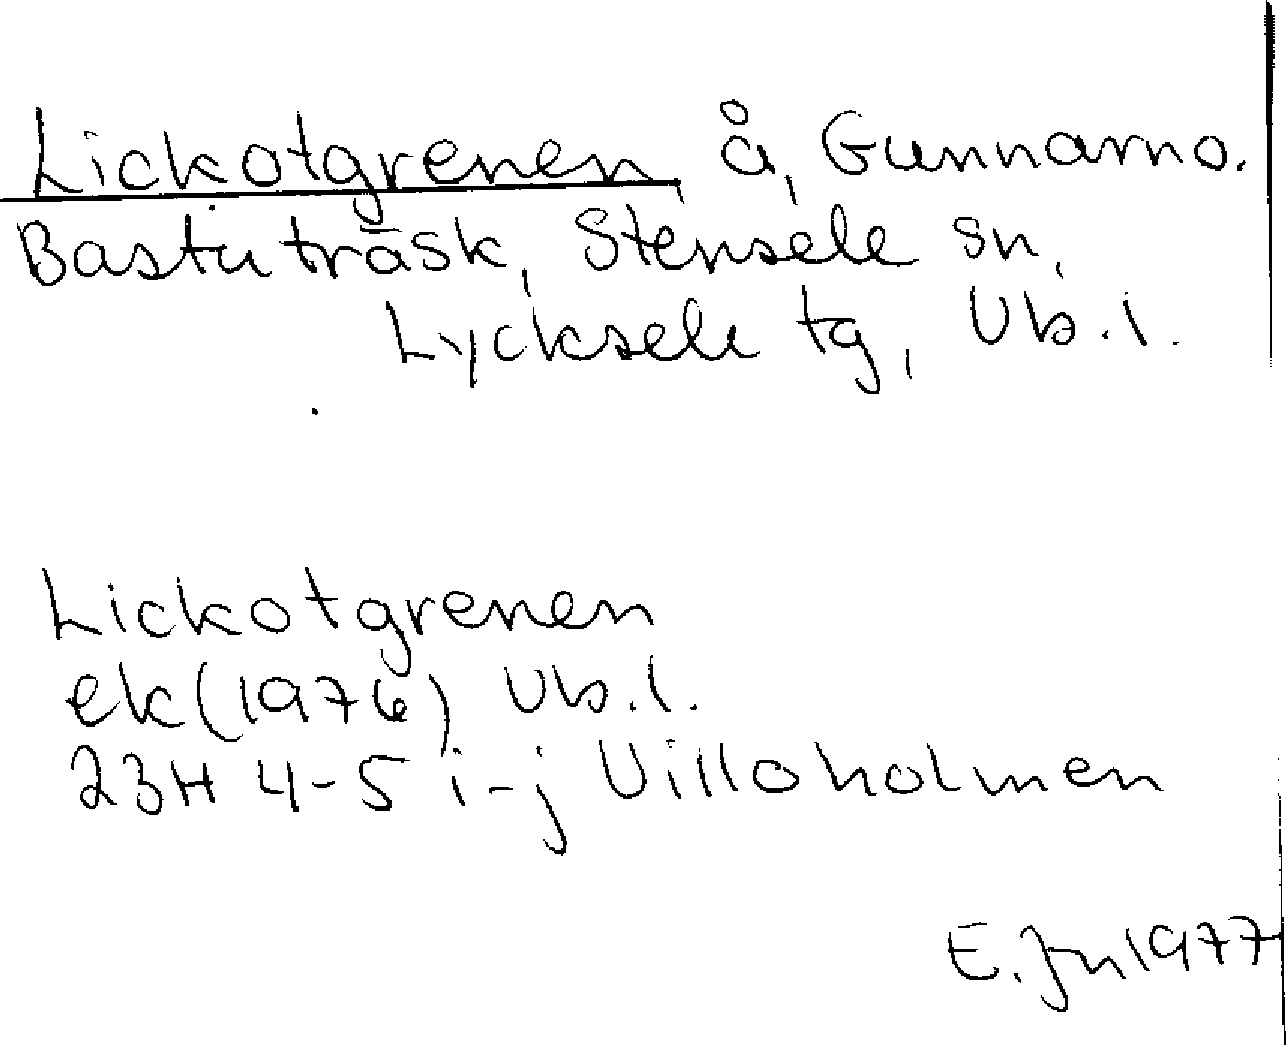 Lickotgrenen å, Gunnarno.
Bastuträsk, Stensele sn,
Lycksele tg, Vb.l.
Lickotgrenen
ek(1976) Vb.l.
23H 4-5 i-j Villoholmen
E. Jn 1977